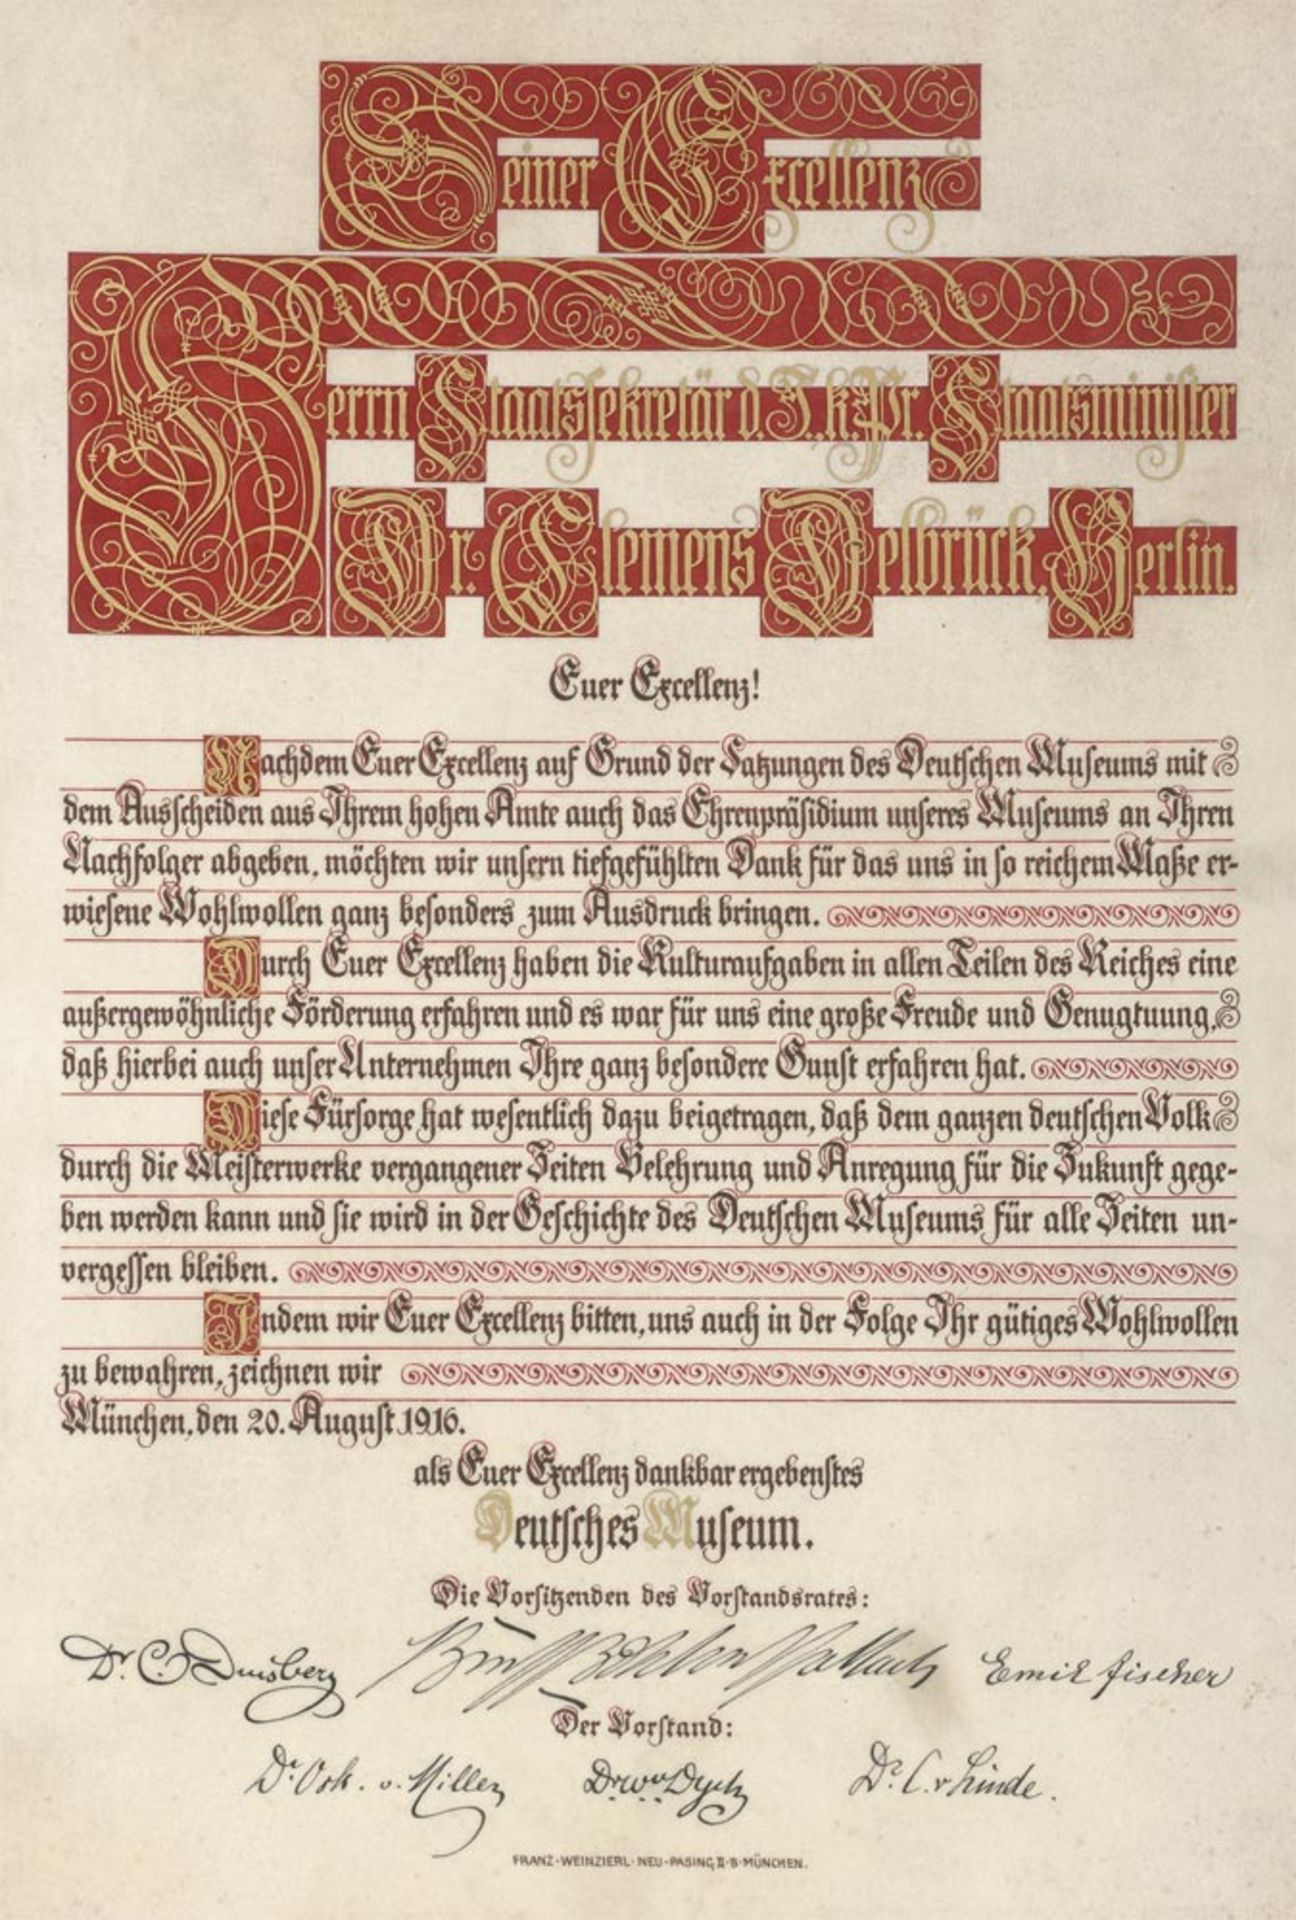 Seiner Excellenz
Herrn Staatssekretär d. J., k. Pr. Staatsminister
Dr. Clemens Delbrück, Berlin.
Euer Excellenz!
Nachdem Euer Excellenz auf Grund der Satzungen des Deutschen Museums mit
dem Ausscheiden aus Ihrem hohen Amte auch das Ehrenpräsidium unseres Museums an Ihren
Nachfolger abgeben, möchten wir unsern tiefgefühlten Dank für das uns in so reichem Maße er-
wiesene Wohlwollen ganz besonders zum Ausdruck bringen.
Durch Euer Excellenz haben die Kulturaufgaben in allen Teilen des Reiches eine
außergewöhnliche Förderung erfahren und es war für uns eine große Freude und Genugtuung,
daß hierbei auch unser Unternehmen Ihre ganz besondere Gunst erfahren hat.
Diese Fürsorge hat wesentlich dazu beigetragen, daß dem ganzen deutschen Volk
durch die Meisterwerke vergangener Zeiten Belehrung und Anregung für die Zukunft gege-
ben werden kann und sie wird in der Geschichte des Deutschen Museums für alle Zeiten un-
vergessen bleiben.
Indem wir Euer Excellenz bitten, uns auch in der Folge Ihr gütiges Wohlwollen
zu bewahren, zeichnen wir
München, den 20. August 1916.
als Euer Excellenz dankbar ergebenstes
Deutsches Museum.
Die Vorsitzenden des Vorstandsrates:
Dr. C. Duisberg Emil Fischer
Der Vorstand:
Dr. Osk. v. Miller Dr. W. v. Dyck Dr. C. v. Linde.
FRANZ·WEINZIERL·NEU-PASING II·B·MÜNCHEN.